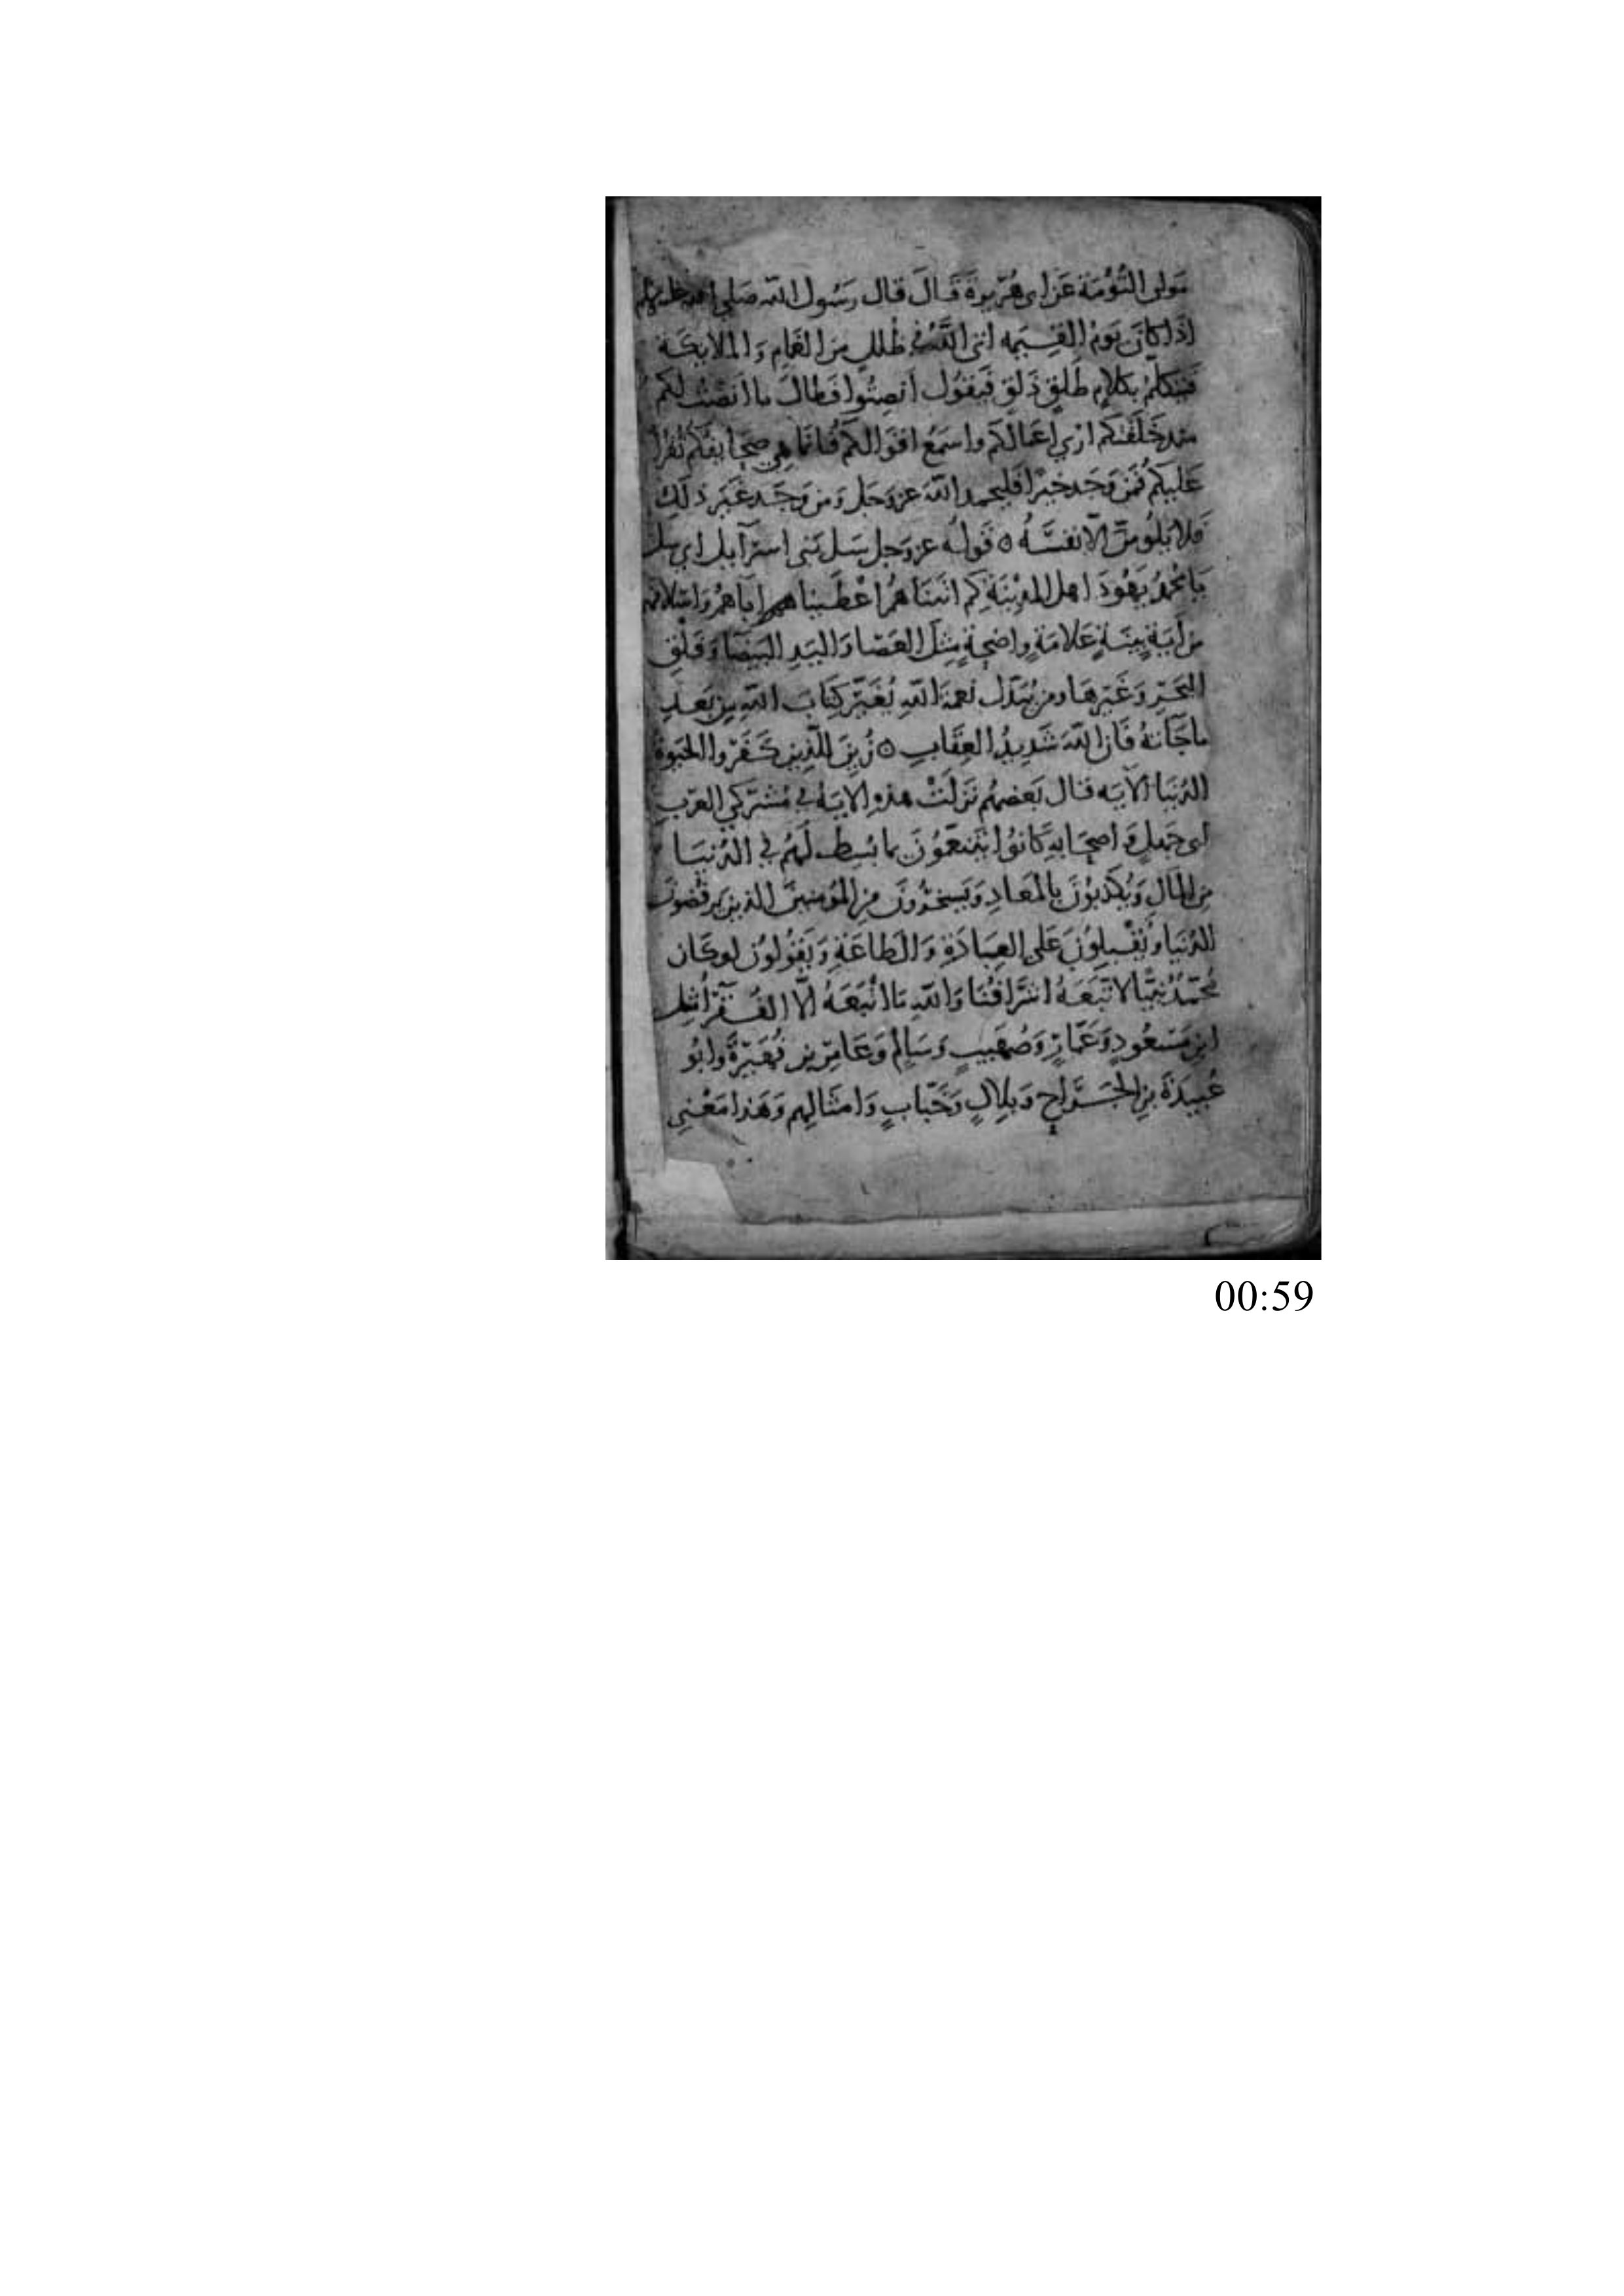 مَولى التُؤُمَة عَن ابى هُرَيرةَ قَالَ قال رَسُول الله صَلى الله عليه
اذا كانَ يَومُ القِيمه اتى اللهُ فى ظُللٍ مِنَ الغَامِ وَ الملايكة
فيتكلّمُ بكلامٍ طَلِقٍ ذَلِقٍ فَيقولُ انصِتُوا فطالَ ما انصَتُّ لكم
منذ خَلَقتكم ارى اعَمالكم واسمَعُ اقوَالكم فانّما هى صحَايفُكم تُقرَأ
عَليكُم فمَن وَجَد خيرًا فليحمد اللهَ عز وجَل وَمن وَجَد غَيرَ ذلك
فلا يلُومنّ الا نفسَهُ ه قَوله عز وَجل سَل بَنى اسرآيل اى سل
يَا محمدُ يَهُودَ اهل المدِينَةِ كم اتينَاهُمْ اعْطَينا هم اباهُمْ وَاسلافهم
من آيةٍ بينَةٍ عَلامَةٍ واضِحةٍ مِثلَ العَصَا وَاليَدِ البَيضَا وَفَلْقِ
البَحَرِ وَغَيرِهَا ومن يُبَدّل نعمَة اللهِ يُغَيّر كِتابَ اللهِ مِن بَعدِ
ما جَآتهُ فَان الله شَدِيدُ العِقَابِ ه زُيِنَ للّذِين كَفَرُوا الحَيَوةُ
الدُنيَا الآيَه قال بَعضهُم نَزلتْ هذِه الايَةُ فى مُشرِكي العَرَبِ
ابى جَهلٍ وَ اصحَابِهِ كَانوُا يَتَنعّمُونَ بما بُسِط لَهُمْ فى الدُنيَا
مِن المَالِ وَيُكذِبُونَ بِالمعَادِ وَيَسخَرُونَ مِن المؤمِنينَ الذين يَرفُضونَ
الدُنيَا ويُقْبِلوُنَ عَلى العِبَادَةِ وَ الطاعَةِ وَيَقولوُن لو كَان
مُحمّدٌ نبيًّا لاتّبَعَهُ اشرَافُنَا وَاللهِ مَا اتّبَعَهُ الّا الفُقَرآءُ مثل
ابن مَسعُودٍ وَعَمّارٍ وَصُهَيبٍ وَسَالِمٍ وَعَامِرِ بن فُهَيرَةَ وابُو
عُبيدَةَ بنِ الجَرَّاحِ وَبلِالٍ وَخَبّابٍ وَامثَالِهم وَهَذا مَعْنى
00:59